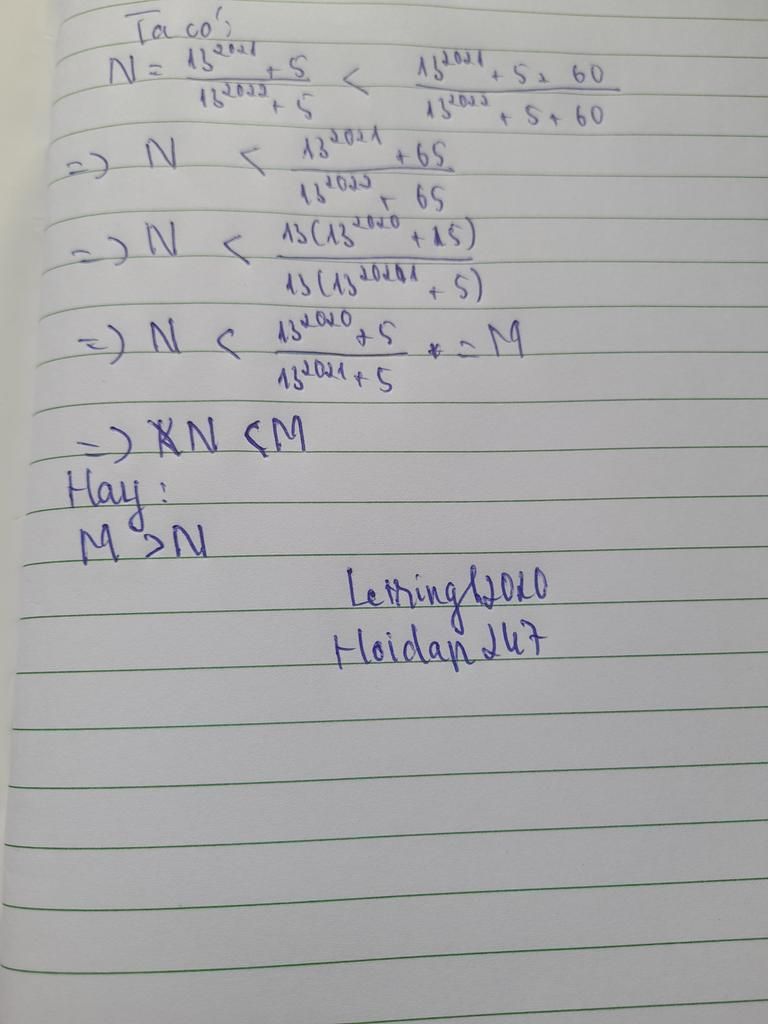 Ta có:
N = 13^2021 + 5 / 13^2022 + 5 < 13^2021 + 5 + 60 / 13^2022 + 5 + 60
=> N < 13^2021 + 65 / 13^2022 + 65
=> N < 13(13^2020 + 5) / 13(13^2021 + 5)
=> N < 13^2020 + 5 / 13^2021 + 5 = M
=> N < M
Hay:
M > N
Hoidap247